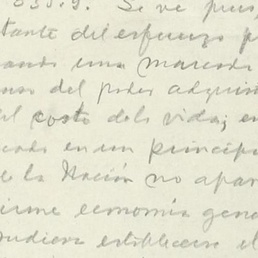 035.9. Se ve pues
tante del esfuerzo p
ando una marcada
del poder adquis
del costo de la vida; en
en un principio
e la Nación no apar
economía gene
pudiera establecerse el